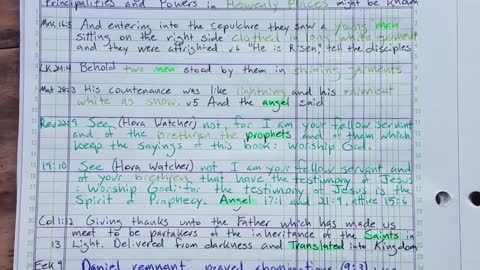 Principalities and Powers in Heavenly Places might be known
Mrk 16:5 And entering into the Sepulchre they saw a young man
sitting on the right side clothed in long white garment
and they were affrighted. v6 "He is Risen," tell the disciples
LK 24:4 Behold two men stood by them in shining garments
Mat 28:3 His countenance was like lightning and his raiment
white as snow. v5 And the angel said
Rev 22:9 See (Hora Watcher) not, for I am your fellow servant
and of the brethren the prophets and of them which
keep the sayings of this book: Worship God.
19:10 See (Hora Watcher) not I am your fellow servant and
of your brethren that have the testimony of Jesus
: Worship God: for the testimony of Jesus is the
Spirit of Prophecy. Angel 17:1 and 21:9, attire 15:6
Col 1:12 Giving thanks unto the Father which has made us
meet to be partakers of the inheritance of the Saints in
13 Light. Delivered from darkness and Translated into Kingdom
Eek 9 Daniel remnant abominations (9:3)